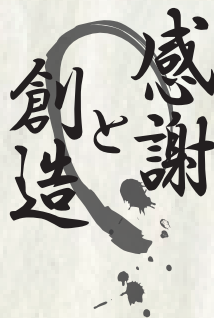 感謝
と
創造